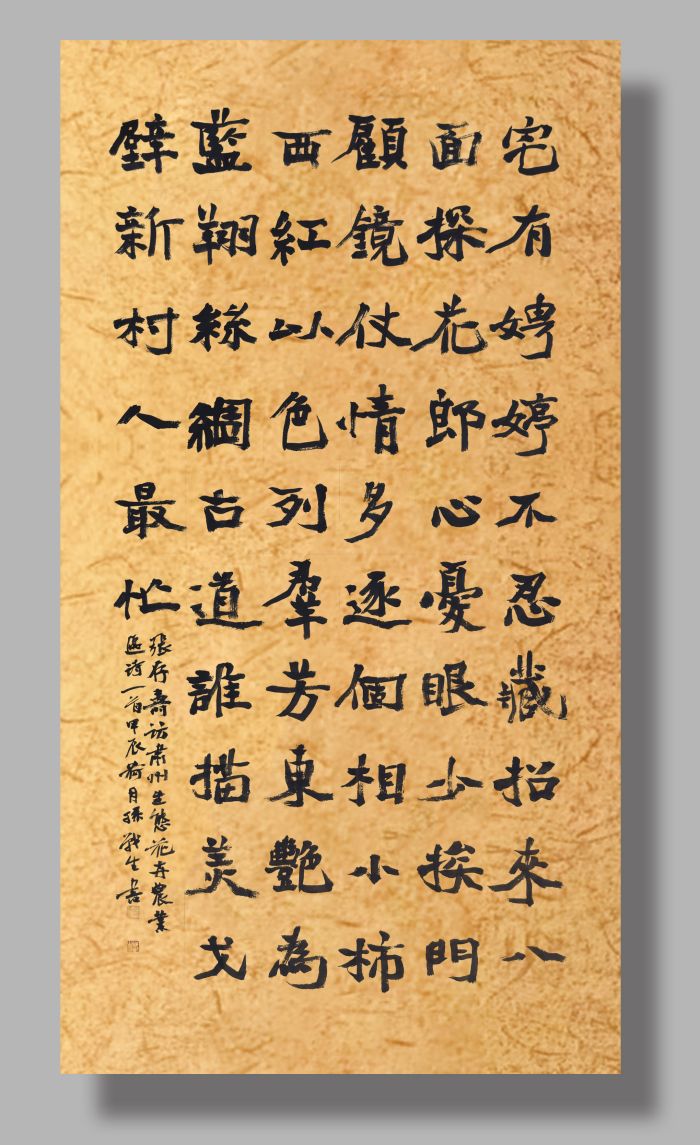 宅有娉婷不忍藏招來八
面探花郎心憂眼少挨門
顧鏡仗情多逐個相小柿
西紅以色列羣芳東艷為
藍翔絲綢古道誰描美戈
壁新村人最忙
張存壽訪肅州生態花卉農業
區詩一首甲辰荷月孫戰生書